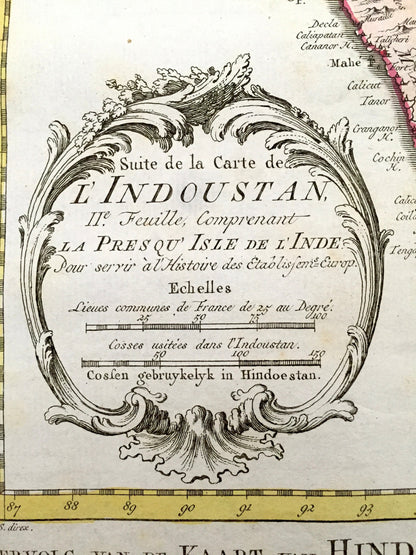 Decla
Caliapatan
Cananor H.
Talichéri
Mahe F.
Calicut
Tanor
Cranganor
H.
Cochin
H.
Suite de la Carte de
L'INDOUSTAN,
IIe. Feuille, Comprenant
LA PRESQU' ISLE DE L'INDE
Pour servir à l'Histoire des Etablissemts. Europ.
Echelles
Lieues communes de France de 25 au Degré.
25 50 75 100
Cosses usitées dans l'Indoustan.
50 100 150
Cossen gebruykelyk in Hindoestan.
87 88 89 90 91 92 93
S. direx.
VERVOLG VAN DE KAART VAN HIND